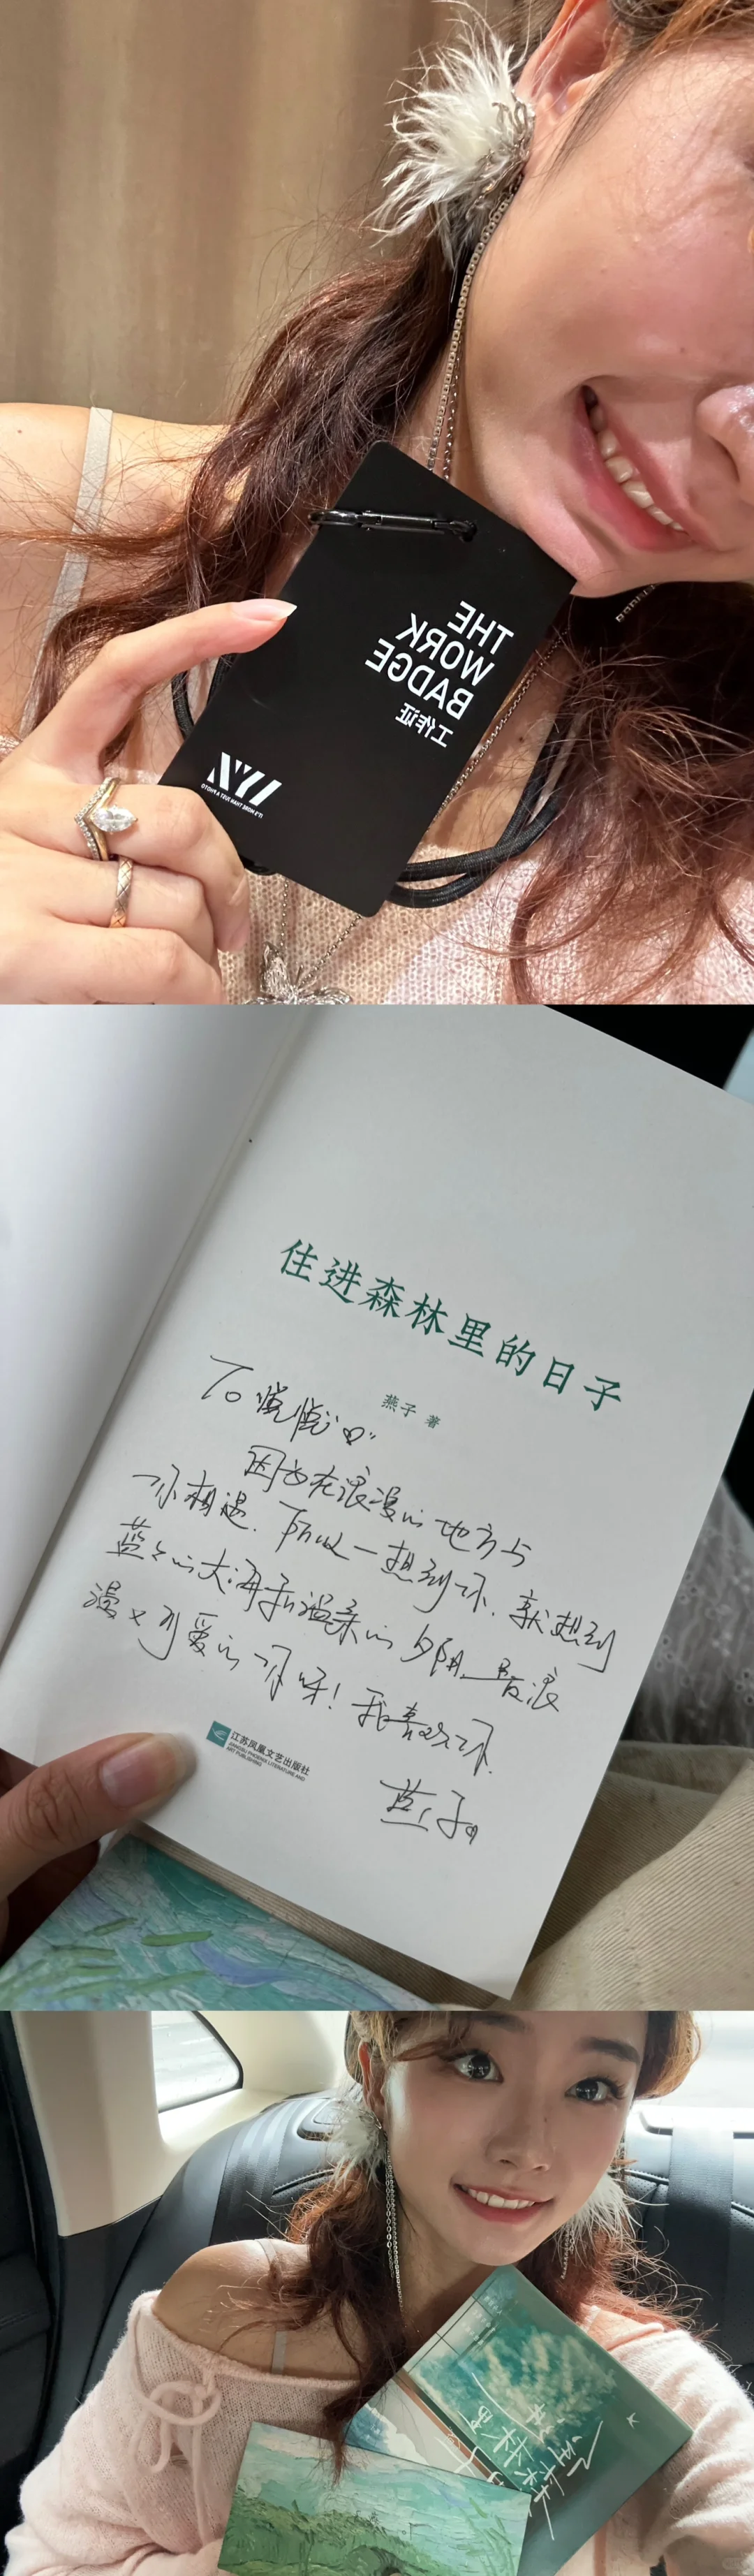 THE
WORK
BADGE
工作证
IT'S MORE THAN JUST A PHOTO
住进森林里的日子
燕子 著
To 悦悦
因为在浪漫的地方与
你相遇. 所以一想到你. 就想到
蓝蓝的大海和温柔的夕阳. 与浪
漫又可爱的你呀! 我喜欢你.
燕子
江苏凤凰文艺出版社
JIANGSU PHOENIX LITERATURE AND
ART PUBLISHING